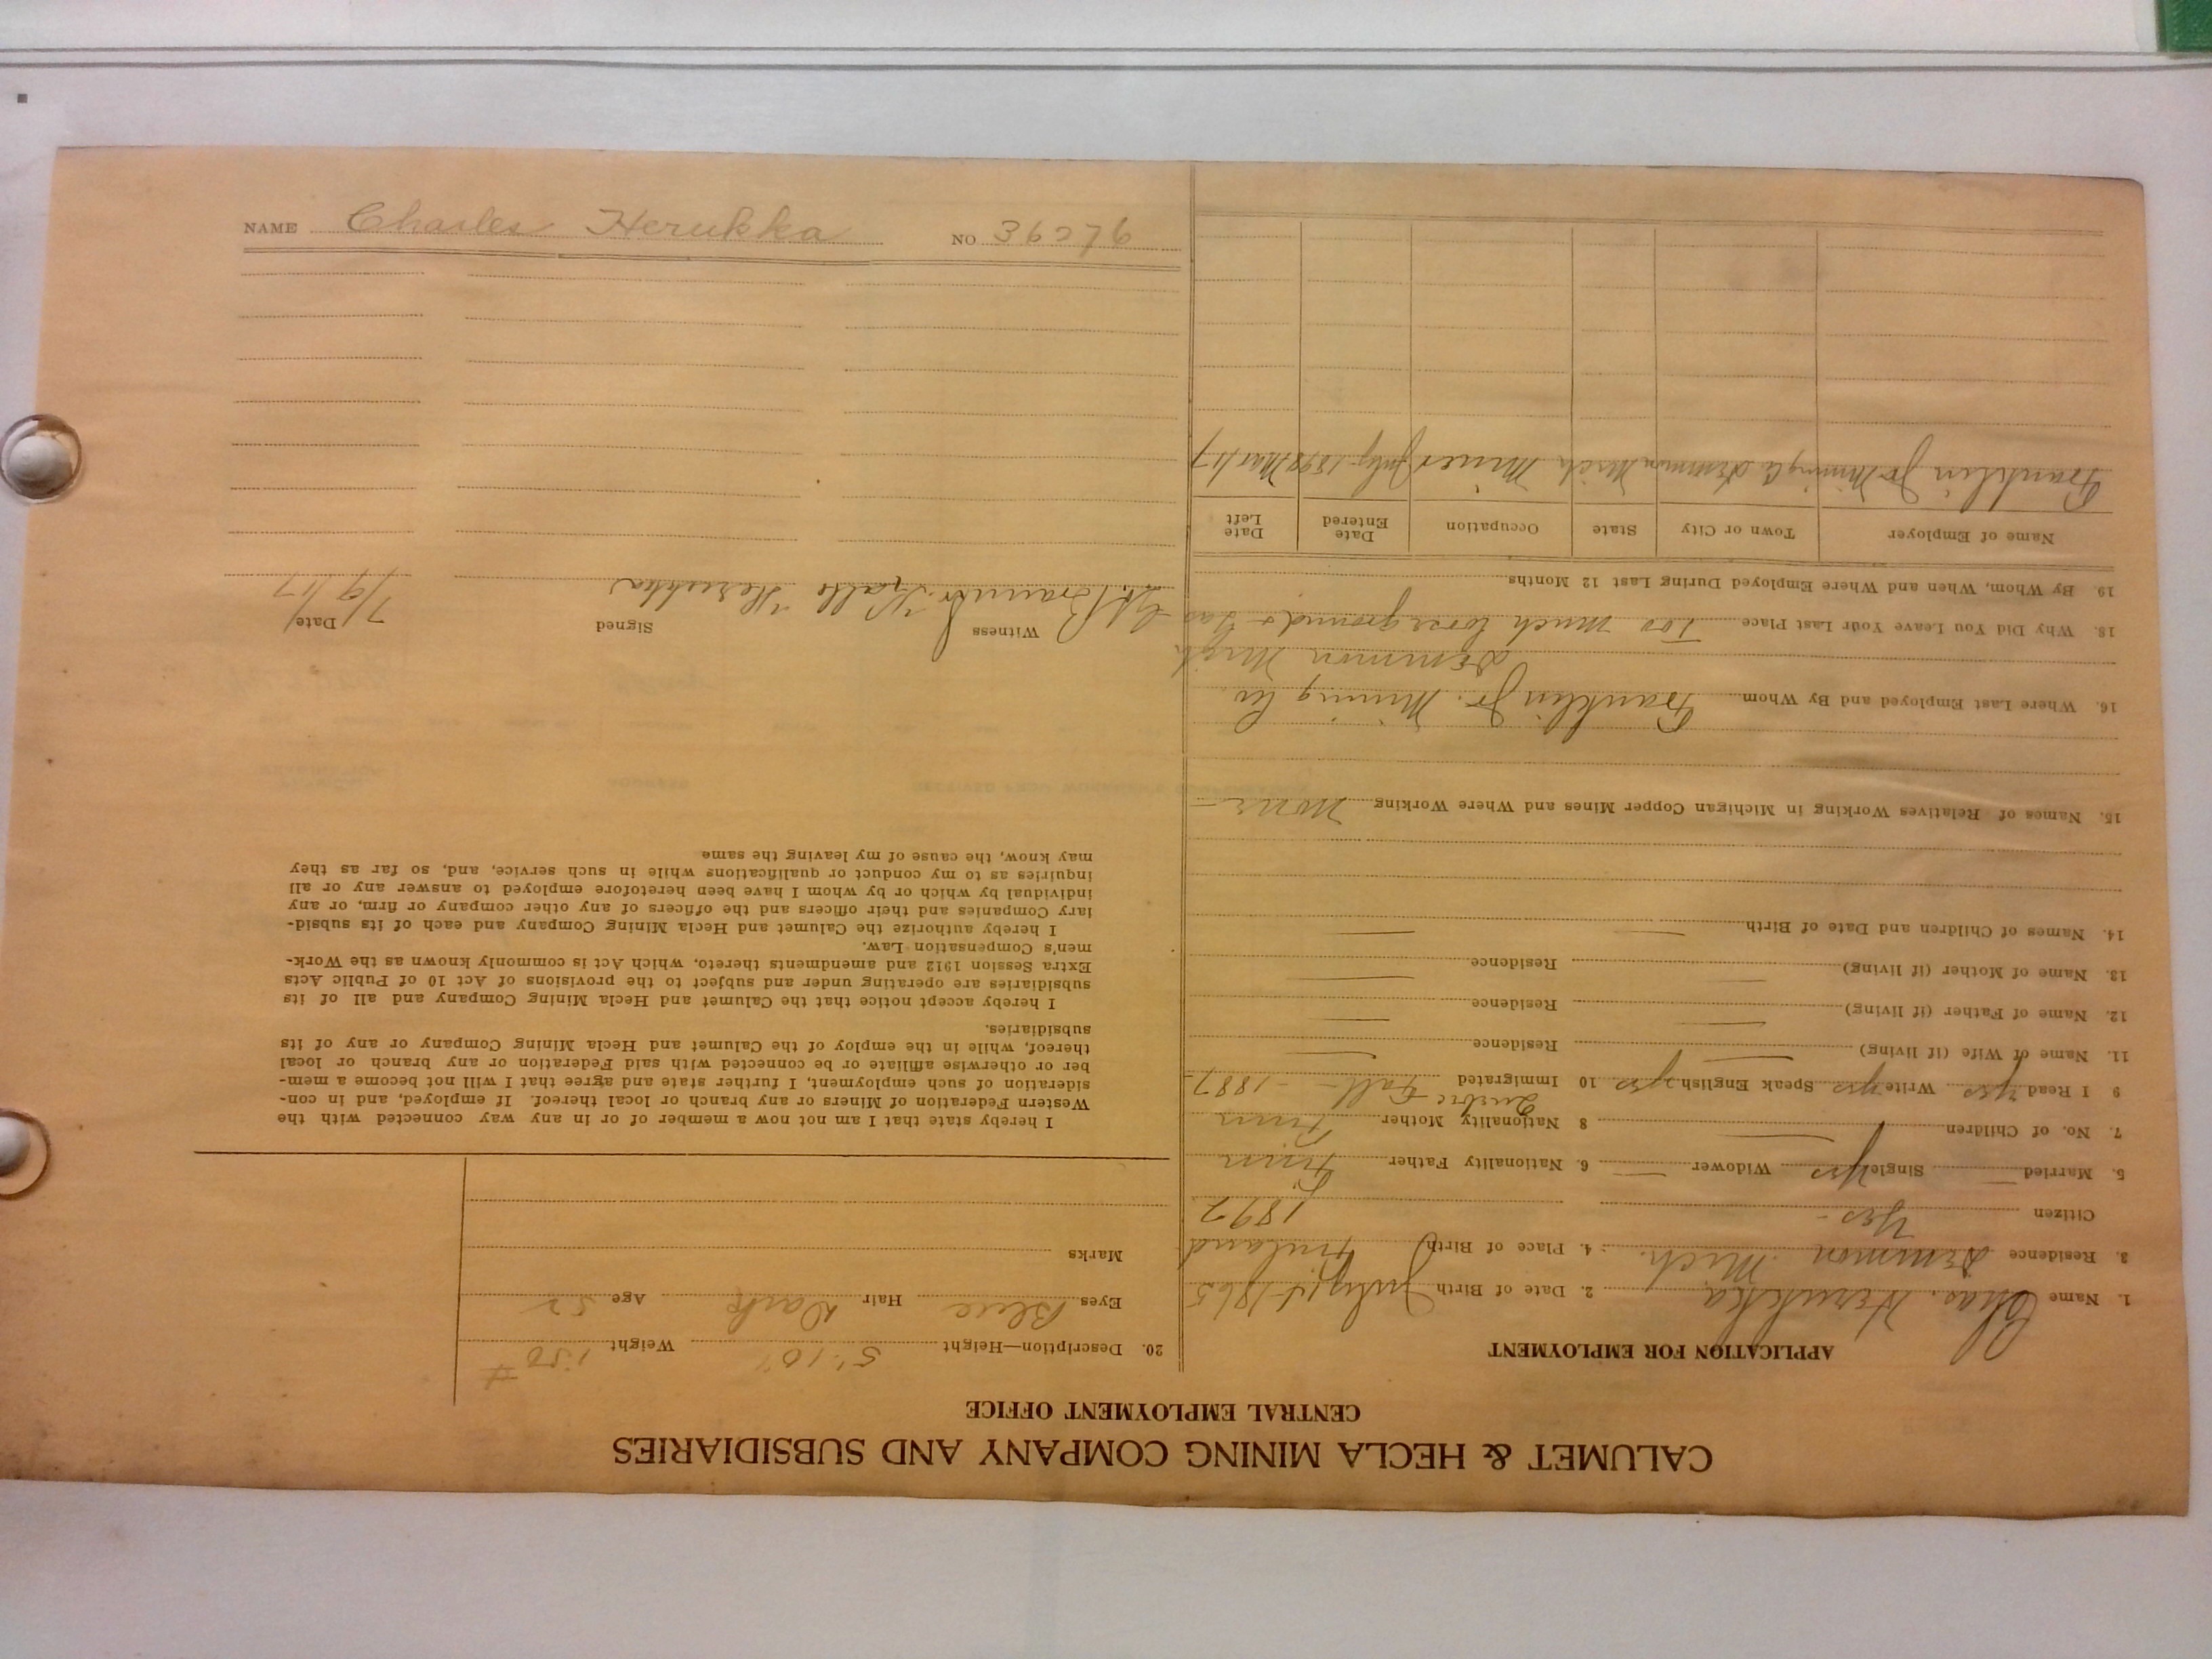 NAME Charles Herukka NO 36276
CALUMET & HECLA MINING COMPANY AND SUBSIDIARIES
CENTRAL EMPLOYMENT OFFICE
APPLICATION FOR EMPLOYMENT
1. Name Chas. Herukka 2. Date of Birth July 1865
3. Residence Demmon Mich. 4. Place of Birth Finland
Citizen Yes - 1892
5. Married Single yes Widower 6. Nationality Father Finn
7. No. of Children 8 Nationality Mother Finn
9 I Read yes Write yes Speak English yes 10 Immigrated Quebec Fall - 1887
11. Name of Wife (if living) Residence
12. Name of Father (if living) Residence
13. Name of Mother (if living) Residence
14. Names of Children and Date of Birth
15. Names of Relatives Working in Michigan Copper Mines and Where Working None -
16. Where Last Employed and By Whom Franklin Jr. Mining Co.
Demmon Mich
18. Why Did You Leave Your Last Place Too much loose ground + gas
19. By Whom, When and Where Employed During Last 12 Months
Name of Employer Town or City State Occupation Date Entered Date Left
Franklin Jr Mining Co Demmon Mich Miner July 1898 Mar/17
20. Description—Height 5' 10" Weight 150 #
Eyes Blue Hair Dark Age 52
Marks
I hereby state that I am not now a member of or in any way connected with the
Western Federation of Miners or any branch or local thereof. If employed, and in con-
sideration of such employment, I further state and agree that I will not become a mem-
ber or otherwise affiliate or be connected with said Federation or any branch or local
thereof, while in the employ of the Calumet and Hecla Mining Company or any of its
subsidiaries.
I hereby accept notice that the Calumet and Hecla Mining Company and all of its
subsidiaries are operating under and subject to the provisions of Act 10 of Public Acts
Extra Session 1912 and amendments thereto, which Act is commonly known as the Work-
men's Compensation Law.
I hereby authorize the Calumet and Hecla Mining Company and each of its subsid-
iary Companies and their officers and the officers of any other company or firm, or any
individual by which or by whom I have been heretofore employed to answer any or all
inquiries as to my conduct or qualifications while in such service, and, so far as they
may know, the cause of my leaving the same
Witness Signed Date
Kalle Herukka 7/9/17